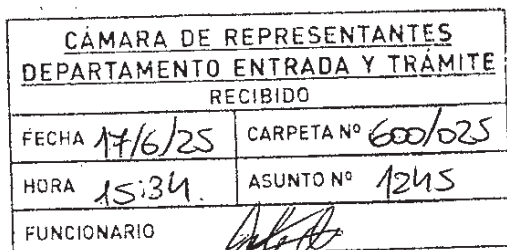 CÁMARA DE REPRESENTANTES
DEPARTAMENTO ENTRADA Y TRÁMITE
RECIBIDO
FECHA 17/6/25 CARPETA Nº 600/025
HORA 15:34. ASUNTO Nº 1245
FUNCIONARIO